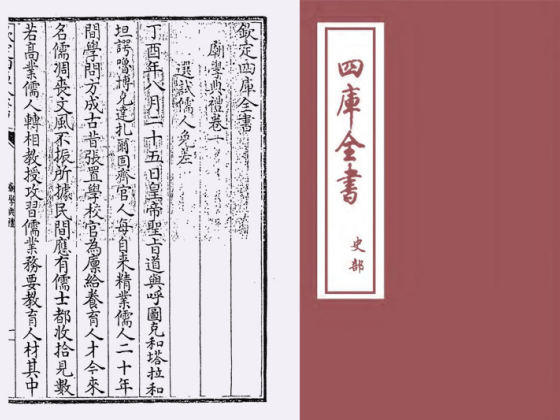 欽定四庫全書
廟學典禮卷一
選試儒人免差
丁酉年八月二十五日皇帝聖旨道與呼圖克和塔拉和
坦諤嚕博克達扎爾固齊官人每自来精業儒人二十年
間學問方成古昔張置學校官為廪給養育人才今來
名儒凋喪文風不振所據民間應有儒士都收拾見數
若高業儒人轉相教授攻習儒業務要教育人材其中
廟學典禮
四庫全書
史部